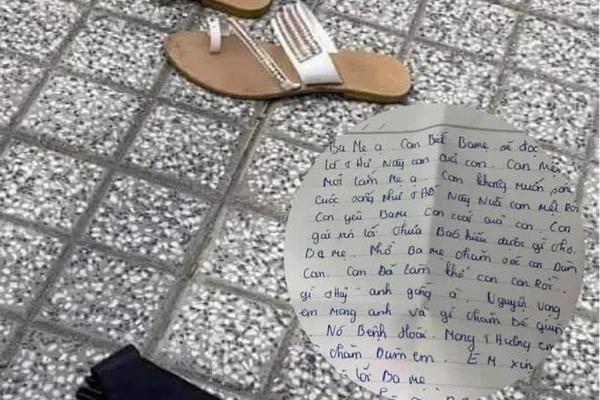 Ba Mẹ ạ. Con Biết Bame sẽ đọc
lá thư Này của con. Con Mệt
Mỏi lắm Mẹ ạ. Con không muốn
cuộc sống Như thế Này Nữa con Mệt Rồi
Con yêu Bame con của con. Con
gái xin lỗi chưa Báo hiếu được gì cho
Ba mẹ. Nhờ Ba mẹ chăm sóc con Dùm
Con. Con Đã làm khổ con con Rồi.
gì thuỷ anh ạ. Nguyện Vọng
em Mong anh và gì chăm bé
Nó Bệnh Hoài. Mong thương em
chăm Dùm em. EM xin
lỗi Ba mẹ